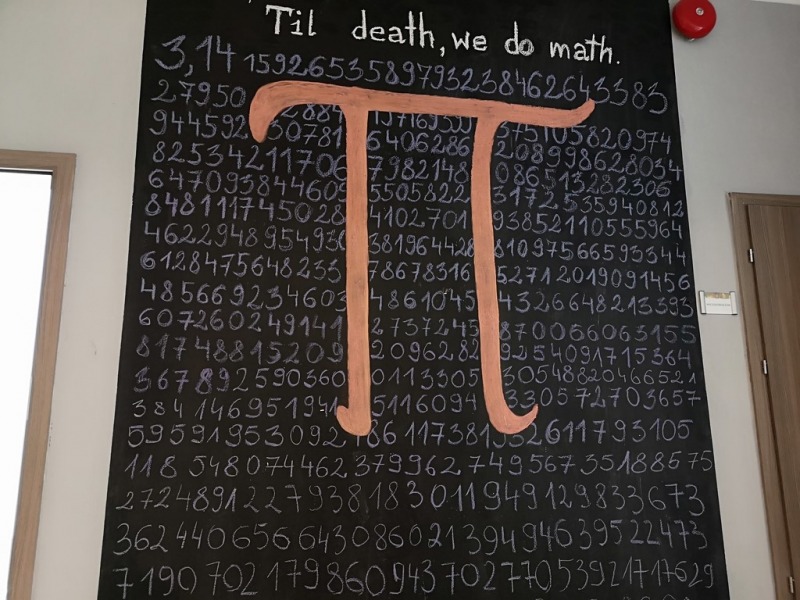 'Til death, we do math.
3,14 159265358979323846264 3383
27950 884 197169399 375105820974
944592 30781 6406286 208998628034
82534211706 7982148 086513282306
647093844609 5505822 3172535940812
848111745028 4102701 938521105559 64
462294895493 381964428 810975665933 44
6128475648233 78678316 52712019091456
485669234603 4861045 4326648213393
607260249141 2737245 87006606 3155
81748815209 2096282 925409171 5364
367892590360 0113305 30548820466521
384 146951941 5116094 330572703657
595919530921 86 117381 932611793105
118 548074462379962749567351885 75
272489122793818301194912983367 3
362 440656643086021394946395224 73
7190 702 179860943702770539217176 29